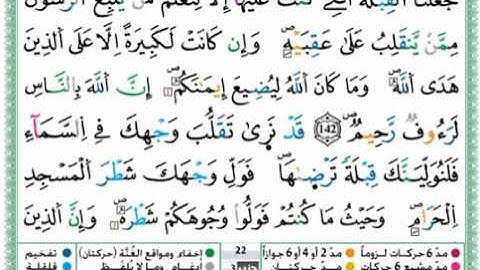 جَعَلْنَا الْقِبْلَةَ الَّتِي كُنتَ عَلَيْهَا إِلَّا لِنَعْلَمَ مَن يَتَّبِعُ الرَّسُولَ
مِمَّن يَنقَلِبُ عَلَىٰ عَقِبَيْهِ وَإِن كَانَتْ لَكَبِيرَةً إِلَّا عَلَى الَّذِينَ
هَدَى اللَّهُ وَمَا كَانَ اللَّهُ لِيُضِيعَ إِيمَٰنَكُمْ إِنَّ اللَّهَ بِالنَّاسِ
لَرَءُوفٌ رَّحِيمٌ 142 قَدْ نَرَىٰ تَقَلُّبَ وَجْهِكَ فِي السَّمَآءِ
فَلَنُوَلِّيَنَّكَ قِبْلَةً تَرْضَىٰهَا فَوَلِّ وَجْهَكَ شَطْرَ الْمَسْجِدِ
الْحَرَامِ وَحَيْثُ مَا كُنتُمْ فَوَلُّوا وُجُوهَكُمْ شَطْرَهُ وَإِنَّ الَّذِينَ
مدّ 6 حركات لزوماً مدّ 2 أو 4 أو 6 جوازاً 22 إخفاء، ومواقع الغُنَّة (حركتان) تفخيم
مدّ مشبع 6 حركات مدّ حركتان إدغام، وما لا يُلفَظ قلقلة